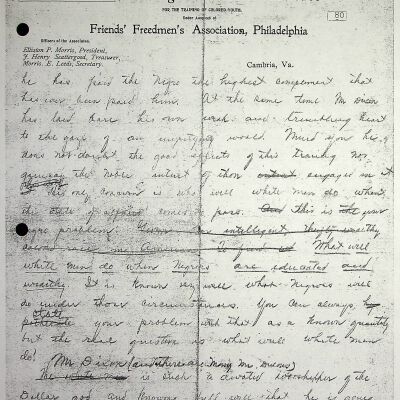 FOR THE TRAINING OF COLORED YOUTH.
Under Auspices of
80
Friends' Freedmen's Association, Philadelphia
Officers of the Association.
Elliston P. Morris, President,
J. Henry Scattergood, Treasurer,
Morris E. Leeds, Secretary.
Cambria, Va.
he has paid the Negro the highest complement that
has ever been paid him. At the same time Mr Dixon
has laid bare his own weak and trembling heart
to the gaze of an world. Mind you he
does not doubt the good effects of this training nor
the noble intent of those engaged in it
His one concern is who will white men do when
the state of affairs comes to pass. And this is the your
negro problem. an intelligent thrifty wealthy
colored race in America What will
white men do when Negroes are educated and
wealthy. It is known very well what Negroes will
do under those circumstances. You can always
state your problem with that as a known quantity
but the real question is what will white men
do?
Mr Dixon (and there are many Mr Dixons)
The white man is such a devoted worshipper of the
Dollar god and knowing full well that he is